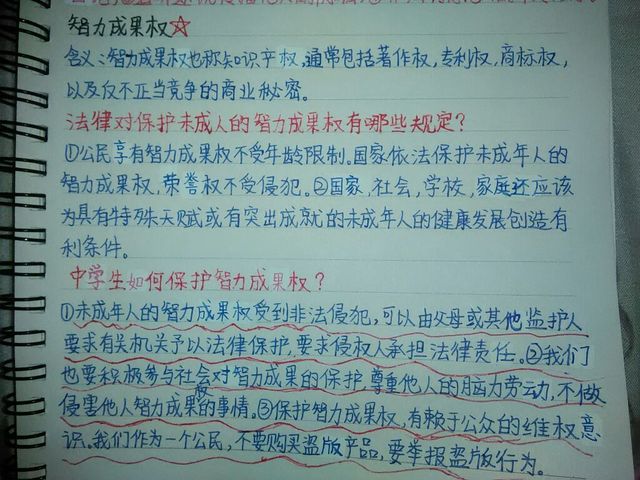 智力成果权☆
含义:智力成果权也称知识产权,通常包括著作权,专利权,商标权,
以及反不正当竞争的商业秘密。
法律对保护未成人的智力成果权有哪些规定?
①公民享有智力成果权不受年龄限制。国家依法保护未成年人的
智力成果权,荣誉权不受侵犯。②国家,社会,学校,家庭还应该
为具有特殊天赋或有突出成就的未成年人的健康发展创造有
利条件。
中学生如何保护智力成果权?
①未成年人的智力成果权受到非法侵犯,可以由父母或其他监护人
要求有关机关予以法律保护,要求侵权人承担法律责任。②我们
也要积极参与社会对智力成果的保护,尊重他人的脑力劳动,不做
侵害他人智力成果的事情。③保护智力成果权,有赖于公众的维权意
识。我们作为一个公民,不要购买盗版产品,要举报盗版行为。